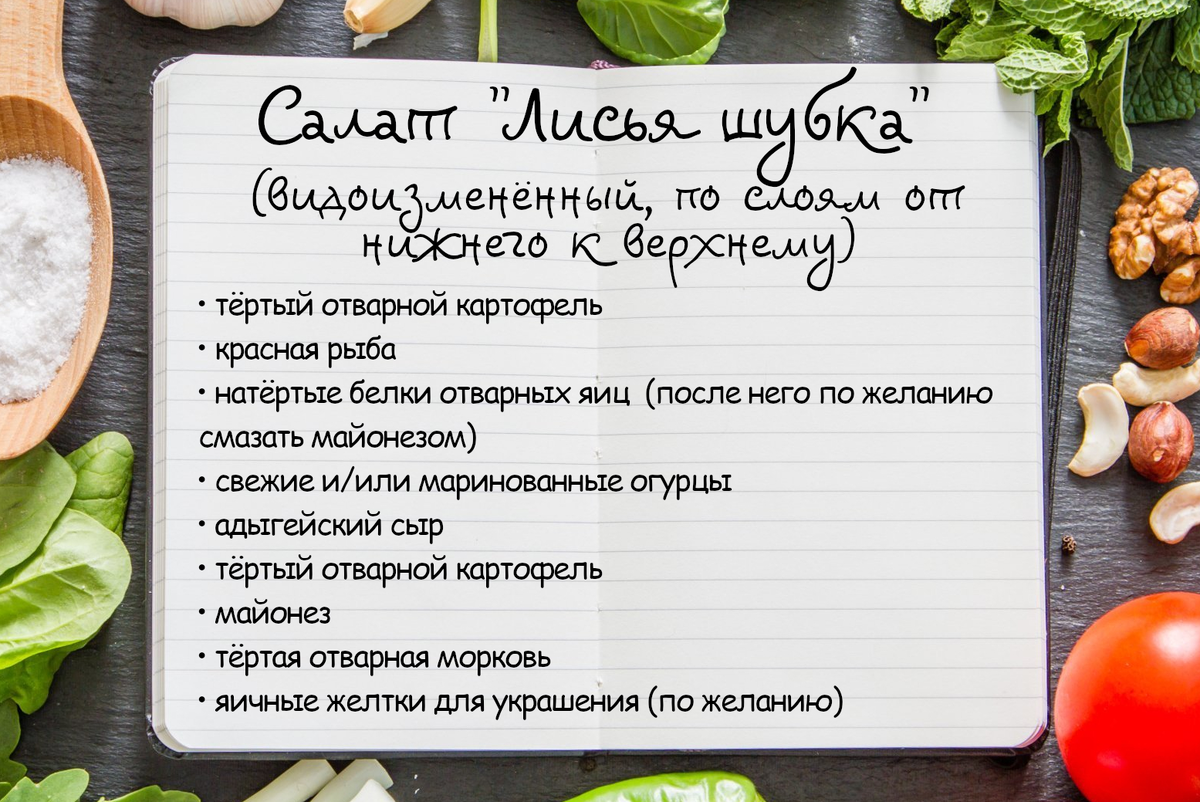 Салат "Лисья шубка"
(видоизменённый, по слоям от
нижнего к верхнему)
• тёртый отварной картофель
• красная рыба
• натёртые белки отварных яиц (после него по желанию
смазать майонезом)
• свежие и/или маринованные огурцы
• адыгейский сыр
• тёртый отварной картофель
• майонез
• тёртая отварная морковь
• яичные желтки для украшения (по желанию)